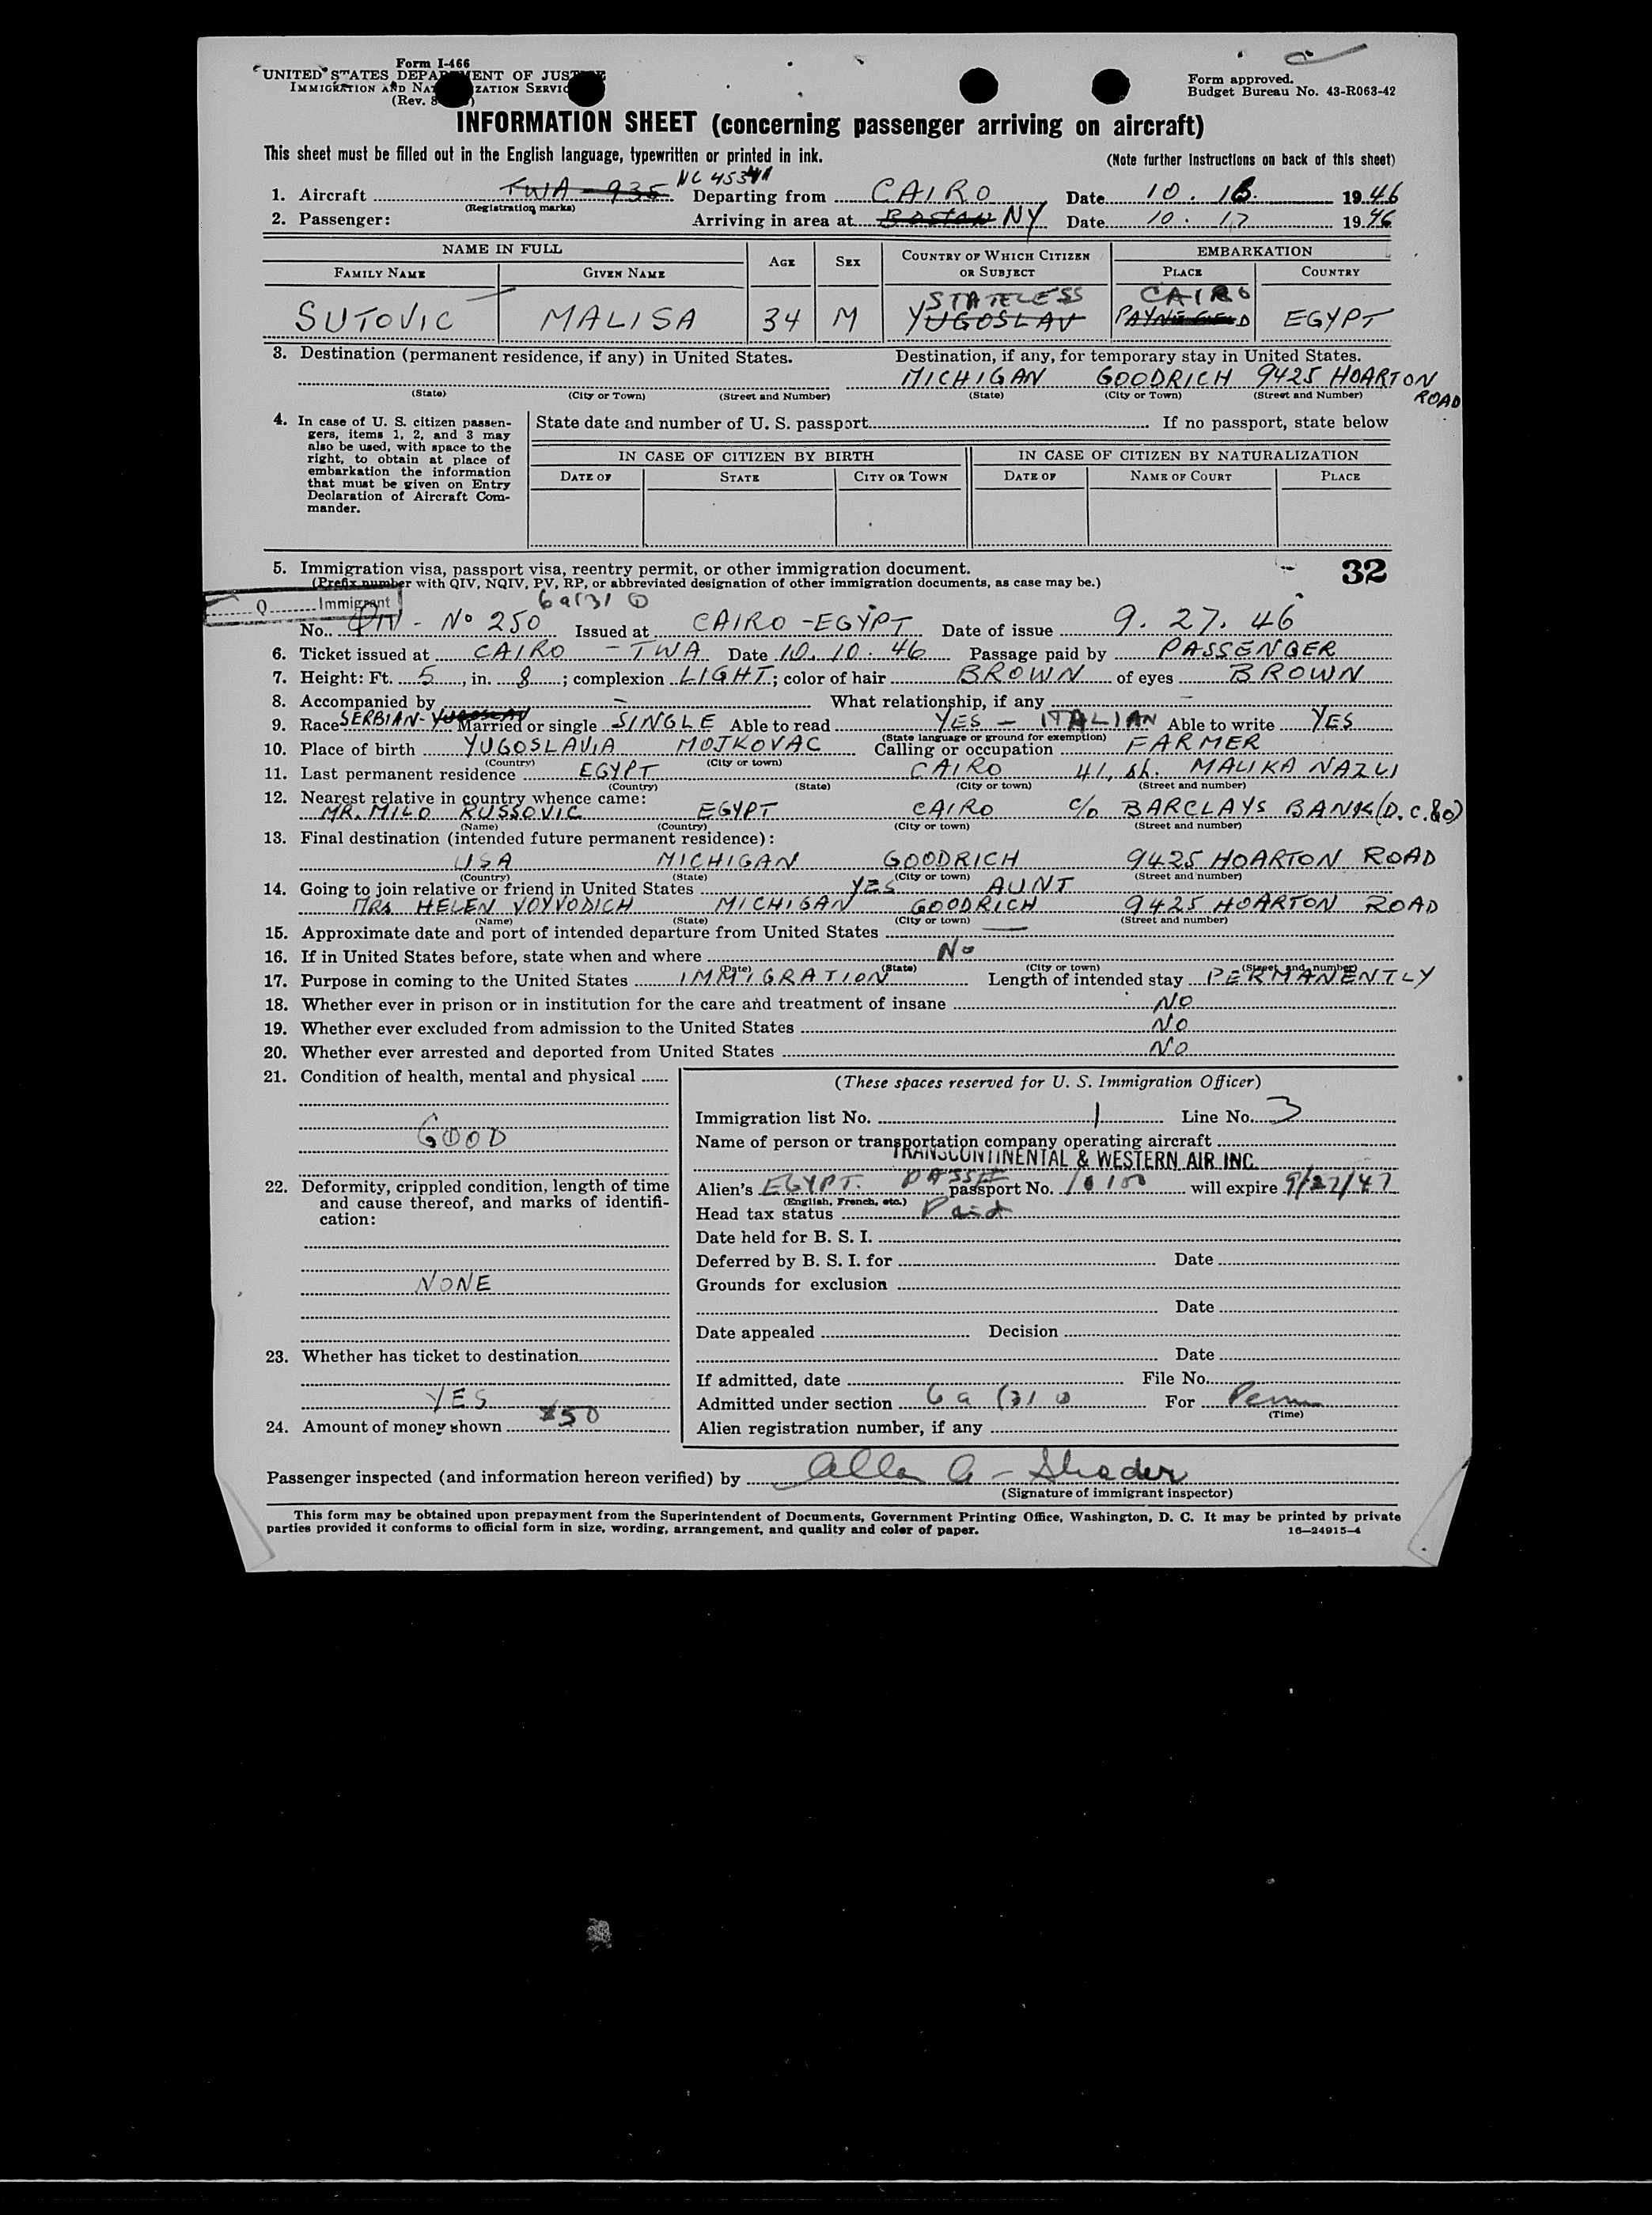 Form I-466
UNITED STATES DEPARTMENT OF JUSTICE
IMMIGRATION AND NATURALIZATION SERVICE
(Rev. 8
Form approved.
Budget Bureau No. 43-R063-42
INFORMATION SHEET (concerning passenger arriving on aircraft)
This sheet must be filled out in the English language, typewritten or printed in ink.
(Note further instructions on back of this sheet)
1. Aircraft TWA - 935 NC 45341 Departing from CAIRO Date 10. 16. 1946
(Registration marks)
2. Passenger: Arriving in area at BOSTON NY Date 10. 17 1946
NAME IN FULL AGE SEX COUNTRY OF WHICH CITIZEN OR SUBJECT EMBARKATION
FAMILY NAME GIVEN NAME PLACE COUNTRY
STATELESS CAIRO
SUTOVIC MALISA 34 M YUGOSLAV PAYNEFIELD EGYPT
3. Destination (permanent residence, if any) in United States. Destination, if any, for temporary stay in United States.
MICHIGAN GOODRICH 9425 HOARTON ROAD
(State) (City or Town) (Street and Number) (State) (City or Town) (Street and Number)
4. In case of U. S. citizen passengers, items 1, 2, and 3 may also be used, with space to the right, to obtain at place of embarkation the information that must be given on Entry Declaration of Aircraft Commander.
State date and number of U. S. passport If no passport, state below
IN CASE OF CITIZEN BY BIRTH IN CASE OF CITIZEN BY NATURALIZATION
DATE OF STATE CITY OR TOWN DATE OF NAME OF COURT PLACE
5. Immigration visa, passport visa, reentry permit, or other immigration document. 32
(Prefix number with QIV, NQIV, PV, RP, or abbreviated designation of other immigration documents, as case may be.)
Q Immigrant 6a(3)
No. QIV - No 250 Issued at CAIRO - EGYPT Date of issue 9. 27. 46
6. Ticket issued at CAIRO - TWA Date 10. 10. 46 Passage paid by PASSENGER
7. Height: Ft. 5, in. 8; complexion LIGHT; color of hair BROWN of eyes BROWN
8. Accompanied by - What relationship, if any -
9. Race SERBIAN - YUGOSLAV Married or single SINGLE Able to read YES - ITALIAN Able to write YES
(State language or ground for exemption)
10. Place of birth YUGOSLAVIA MOJKOVAC Calling or occupation FARMER
(Country) (City or town)
11. Last permanent residence EGYPT CAIRO 41, sh. MALIKA NAZLI
(Country) (State) (City or town) (Street and number)
12. Nearest relative in country whence came:
MR. MILO RUSSOVIC EGYPT CAIRO c/o BARCLAYS BANK (D.C.&O)
(Name) (Country) (City or town) (Street and number)
13. Final destination (intended future permanent residence):
USA MICHIGAN GOODRICH 9425 HOARTON ROAD
(Country) (State) (City or town) (Street and number)
14. Going to join relative or friend in United States YES AUNT
MRS HELEN VOYVODICH MICHIGAN GOODRICH 9425 HOARTON ROAD
(Name) (State) (City or town) (Street and number)
15. Approximate date and port of intended departure from United States —
16. If in United States before, state when and where No
(Date) (State) (City or town) (Street and number)
17. Purpose in coming to the United States IMMIGRATION Length of intended stay PERMANENTLY
18. Whether ever in prison or in institution for the care and treatment of insane NO
19. Whether ever excluded from admission to the United States NO
20. Whether ever arrested and deported from United States NO
21. Condition of health, mental and physical
GOOD
22. Deformity, crippled condition, length of time and cause thereof, and marks of identification:
NONE
23. Whether has ticket to destination
YES
24. Amount of money shown $50
(These spaces reserved for U. S. Immigration Officer)
Immigration list No. 1 Line No. 3
Name of person or transportation company operating aircraft
TRANSCONTINENTAL & WESTERN AIR INC.
Alien's EGYPT. PASSE passport No. 10100 will expire 9/27/47
(English, French, etc.)
Head tax status Paid
Date held for B. S. I.
Deferred by B. S. I. for Date
Grounds for exclusion
Date
Date appealed Decision
Date
If admitted, date File No.
Admitted under section 6a (3) For Perm
(Time)
Alien registration number, if any
Passenger inspected (and information hereon verified) by
(Signature of immigrant inspector)
This form may be obtained upon prepayment from the Superintendent of Documents, Government Printing Office, Washington, D. C. It may be printed by private
parties provided it conforms to official form in size, wording, arrangement, and quality and color of paper. 16—24915-4